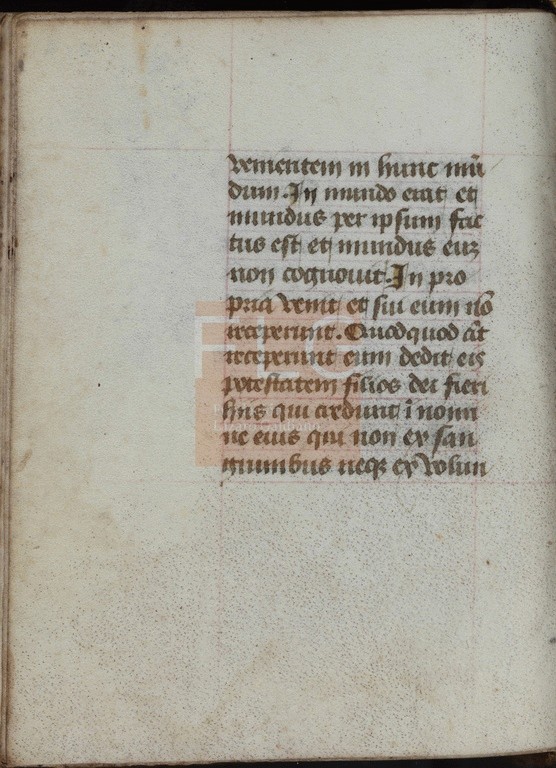 venientem in hunc mū
dum. In mundo erat et
mundus per ipsum fac
tus est et mundus euꝫ
non cognouit. In pro
pria venit et sui eum nō
receperunt. Quodquod aūt
receperunt eum dedit eis
potestatem filios dei fieri
hiis qui credunt ī nomi
ne eius qui non ex san
guinibus neqꝫ ex volun
FLG